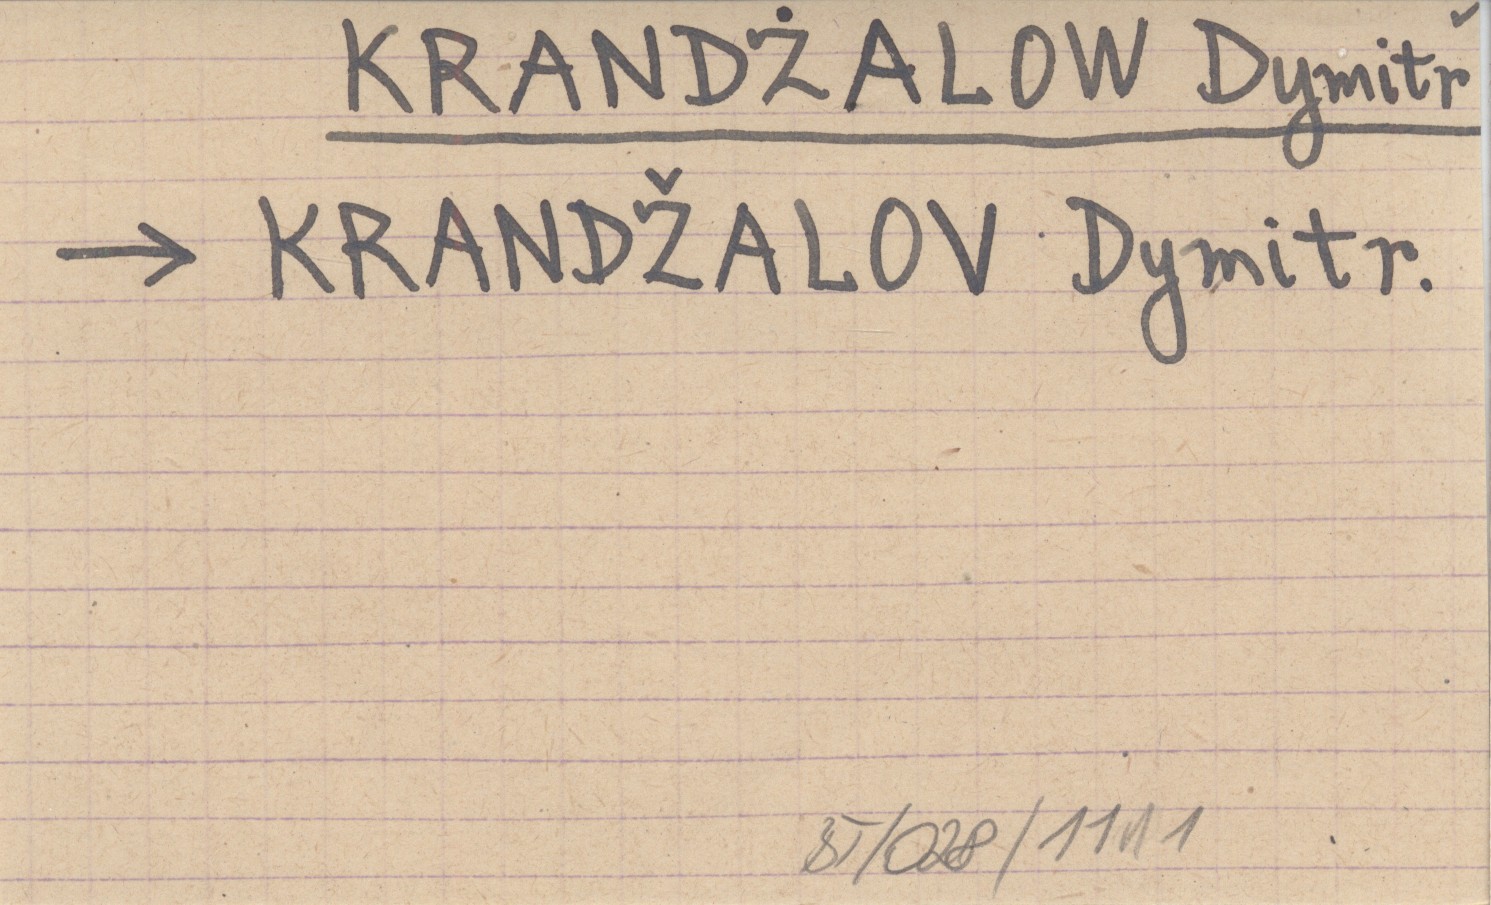 KRANDŻALOW Dymitr
→ KRANDŽALOV Dymitr.
/028/